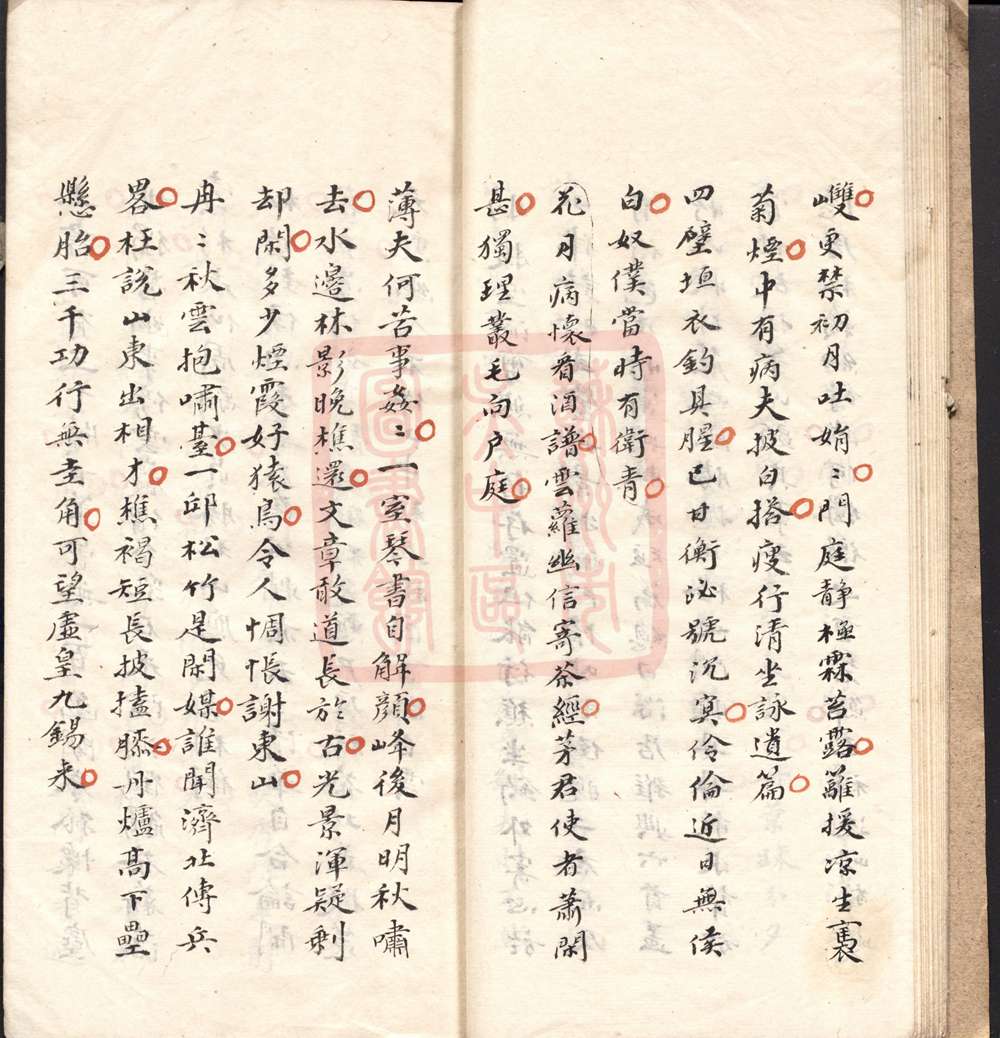 雙更禁初月吐娟〻門庭静極霖苔露籬援凉生裛
菊煙中有病夫披白搭瘦行清坐詠遺篇
四壁垣衣釣具腥已甘衡泌號沉冥伶倫近日無侯
白奴僕當時有衛青
花月病懷看酒譜雲蘿幽信寄茶經茅君使者蕭閑
甚獨理叢毛向户庭
薄夫何苦事姦〻一室琴書自解顔峰後月明秋嘯
去水邉林影晚樵還文章敢道長於古光景渾疑剩
却閑多少煙霞好猿鳥令人惆悵謝東山
冉〻秋雲抱嘯臺一邱松竹是閑媒誰聞濟北傳兵
畧枉說山東出相才樵褐短長披搕𦠆丹爐高下壘
懸胎三千功行無圭角可望虛皇九錫来